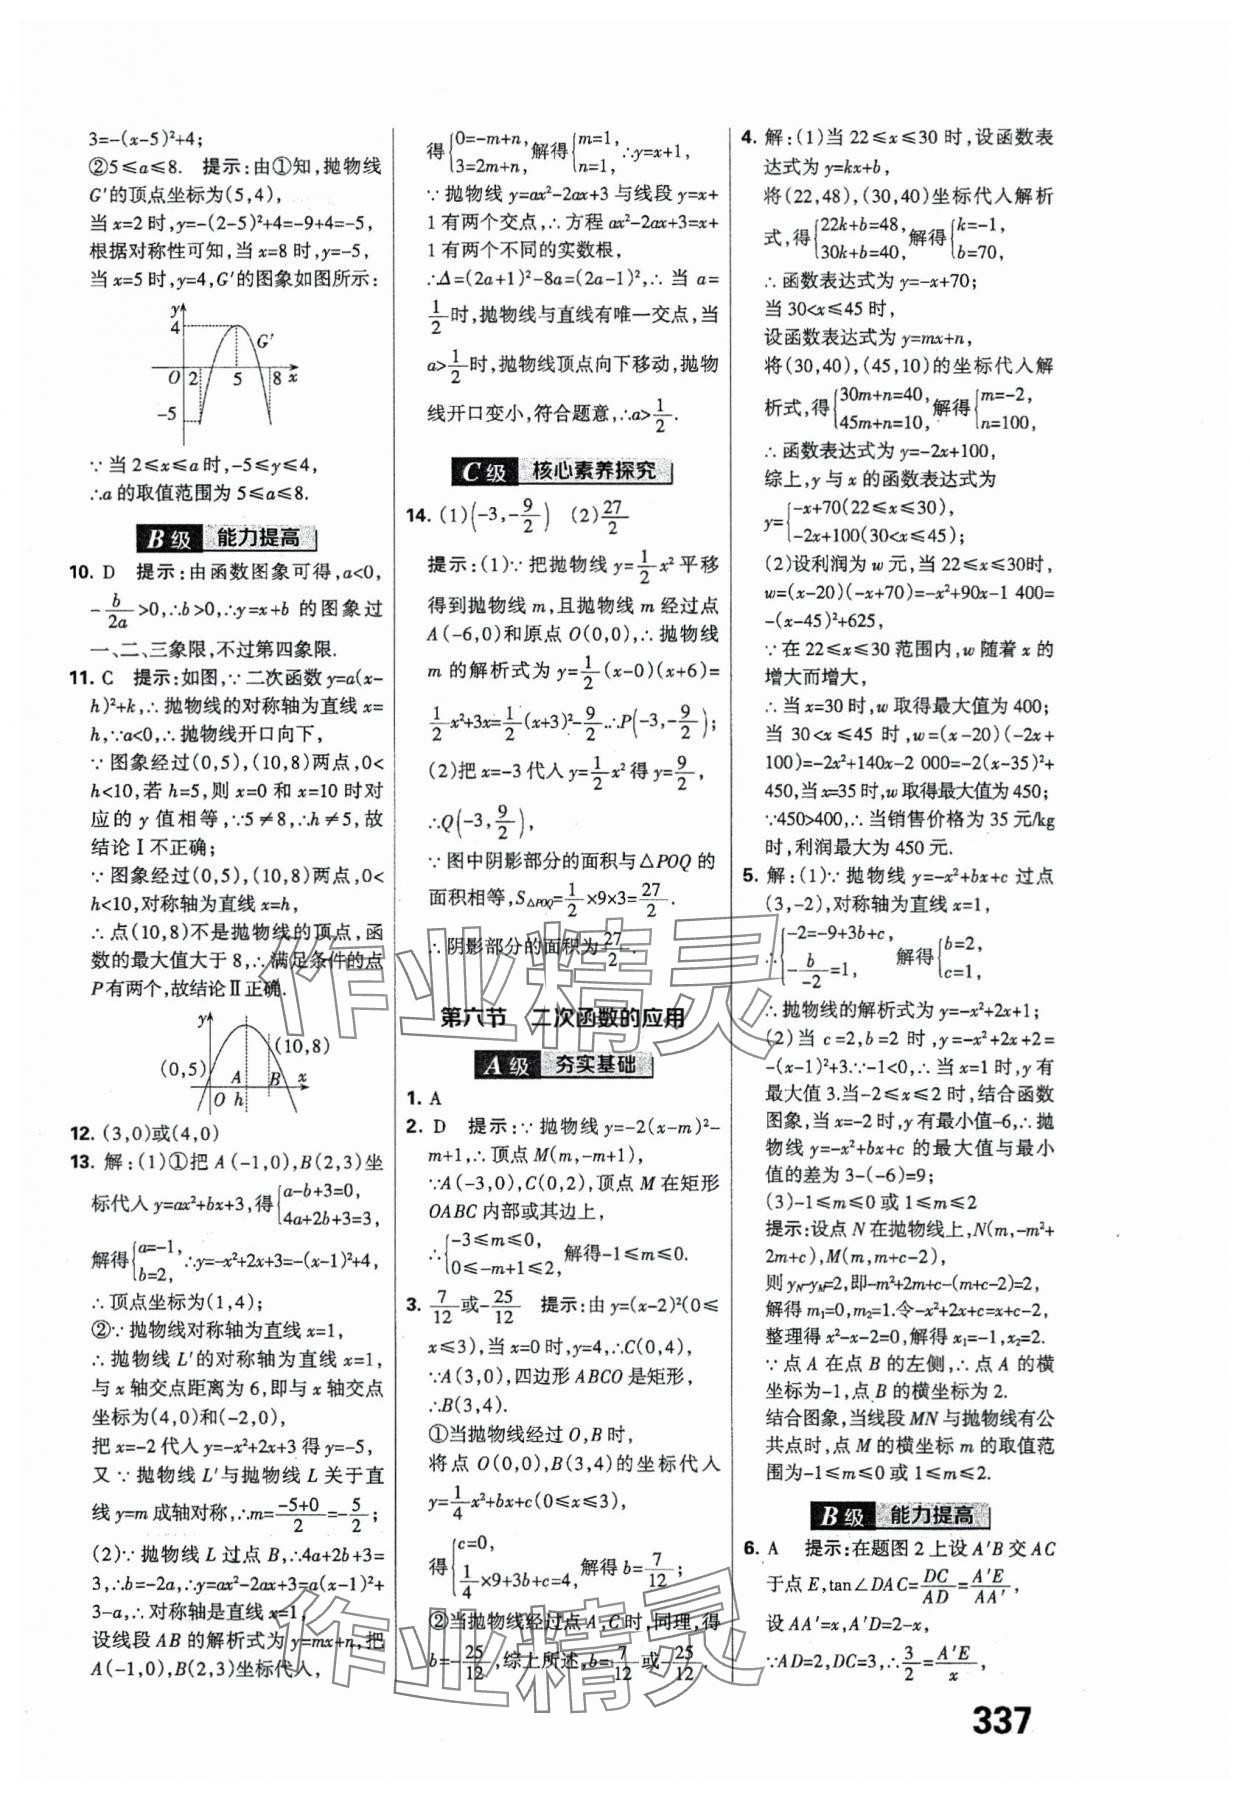 3=-(x-5)²+4;
②5≤a≤8. 提示:由①知,抛物线
G′的顶点坐标为(5,4),
当x=2时,y=-(2-5)²+4=-9+4=-5,
根据对称性可知,当x=8时,y=-5,
当x=5时,y=4,G′的图象如图所示:
y
4
G′
O 2 5 8 x
-5
∵当2≤x≤a时,-5≤y≤4,
∴a的取值范围为5≤a≤8.
B级 能力提高
10. D 提示:由函数图象可得,a<0,
-b/2a>0,∴b>0,∴y=x+b的图象过
一、二、三象限,不过第四象限.
11. C 提示:如图,∵二次函数y=a(x-
h)²+k,∴抛物线的对称轴为直线x=
h,∵a<0,∴抛物线开口向下,
∵图象经过(0,5),(10,8)两点,0<
h<10,若h=5,则x=0和x=10时对
应的y值相等,∵5≠8,∴h≠5,故
结论Ⅰ不正确;
∵图象经过(0,5),(10,8)两点,0<
h<10,对称轴为直线x=h,
∴点(10,8)不是抛物线的顶点,函
数的最大值大于8,∴满足条件的点
P有两个,故结论Ⅱ正确.
y
(10,8)
(0,5) A B x
O h
12. (3,0)或(4,0)
13. 解:(1)①把A(-1,0),B(2,3)坐
标代入y=ax²+bx+3,得{a-b+3=0, 4a+2b+3=3,
解得{a=-1, b=2, ∴y=-x²+2x+3=-(x-1)²+4,
∴顶点坐标为(1,4);
②∵抛物线对称轴为直线x=1,
∴抛物线L′的对称轴为直线x=1,
与x轴交点距离为6,即与x轴交点
坐标为(4,0)和(-2,0),
把x=-2代入y=-x²+2x+3得y=-5,
又∵抛物线L′与抛物线L关于直
线y=m成轴对称,∴m=(-5+0)/2=-5/2;
(2)∵抛物线L过点B,∴4a+2b+3=
3,∴b=-2a,∴y=ax²-2ax+3=a(x-1)²+
3-a,∴对称轴是直线x=1,
设线段AB的解析式为y=mx+n,把
A(-1,0),B(2,3)坐标代入,
得{0=-m+n, 3=2m+n, 解得{m=1, n=1, ∴y=x+1,
∵抛物线y=ax²-2ax+3与线段y=x+
1有两个交点,∴方程ax²-2ax+3=x+
1有两个不同的实数根,
∴Δ=(2a+1)²-8a=(2a-1)²,∴当a=
1/2时,抛物线与直线有唯一交点,当
a>1/2时,抛物线顶点向下移动,抛物
线开口变小,符合题意,∴a>1/2.
C级 核心素养探究
14. (1)(-3,-9/2) (2)27/2
提示:(1)∵把抛物线y=1/2x²平移
得到抛物线m,且抛物线m经过点
A(-6,0)和原点O(0,0),∴抛物线
m的解析式为y=1/2(x-0)(x+6)=
1/2x²+3x=1/2(x+3)²-9/2.∴P(-3,-9/2);
(2)把x=-3代入y=1/2x²得y=9/2,
∴Q(-3,9/2),
∵图中阴影部分的面积与△POQ的
面积相等,S△POQ=1/2×9×3=27/2.
∴阴影部分的面积为27/2.
第六节 二次函数的应用
A级 夯实基础
1. A
2. D 提示:∵抛物线y=-2(x-m)²-
m+1,∴顶点M(m,-m+1),
∵A(-3,0),C(0,2),顶点M在矩形
OABC内部或其边上,
∴{-3≤m≤0, 0≤-m+1≤2, 解得-1≤m≤0.
3. 7/12或-25/12 提示:由y=(x-2)²(0≤
x≤3),当x=0时,y=4,∴C(0,4),
∵A(3,0),四边形ABCO是矩形,
∴B(3,4).
①当抛物线经过O,B时,
将点O(0,0),B(3,4)的坐标代入
y=1/4x²+bx+c(0≤x≤3),
得{c=0, 1/4×9+3b+c=4, 解得b=7/12;
②当抛物线经过点A,C时,同理,得
b=-25/12,综上所述,b=7/12或-25/12.
4. 解:(1)当22≤x≤30时,设函数表
达式为y=kx+b,
将(22,48),(30,40)坐标代入解析
式,得{22k+b=48, 30k+b=40, 解得{k=-1, b=70,
∴函数表达式为y=-x+70;
当30<x≤45时,
设函数表达式为y=mx+n,
将(30,40),(45,10)的坐标代入解
析式,得{30m+n=40, 45m+n=10, 解得{m=-2, n=100,
∴函数表达式为y=-2x+100,
综上,y与x的函数表达式为
y={-x+70(22≤x≤30), -2x+100(30<x≤45);
(2)设利润为w元,当22≤x≤30时,
w=(x-20)(-x+70)=-x²+90x-1 400=
-(x-45)²+625,
∵在22≤x≤30范围内,w随着x的
增大而增大,
∴当x=30时,w取得最大值为400;
当30<x≤45时,w=(x-20)(-2x+
100)=-2x²+140x-2 000=-2(x-35)²+
450,当x=35时,w取得最大值为450;
∵450>400,∴当销售价格为35元/kg
时,利润最大为450元.
5. 解:(1)∵抛物线y=-x²+bx+c过点
(3,-2),对称轴为直线x=1,
∴{-2=-9+3b+c, -b/-2=1, 解得{b=2, c=1,
∴抛物线的解析式为y=-x²+2x+1;
(2)当c=2,b=2时,y=-x²+2x+2=
-(x-1)²+3.∵-1<0,∴当x=1时,y有
最大值3.当-2≤x≤2时,结合函数
图象,当x=-2时,y有最小值-6,∴抛
物线y=-x²+bx+c的最大值与最小
值的差为3-(-6)=9;
(3)-1≤m≤0或1≤m≤2
提示:设点N在抛物线上,N(m,-m²+
2m+c),M(m,m+c-2),
则yN-yM=2,即-m²+2m+c-(m+c-2)=2,
解得m₁=0,m₂=1.令-x²+2x+c=x+c-2,
整理得x²-x-2=0,解得x₁=-1,x₂=2.
∵点A在点B的左侧,∴点A的横
坐标为-1,点B的横坐标为2.
结合图象,当线段MN与抛物线有公
共点时,点M的横坐标m的取值范
围为-1≤m≤0或1≤m≤2.
B级 能力提高
6. A 提示:在题图2上设A′B交AC
于点E,tan∠DAC=DC/AD=A′E/AA′,
设AA′=x,A′D=2-x,
∵AD=2,DC=3,∴3/2=A′E/x,
337
作业精灵
作业精灵